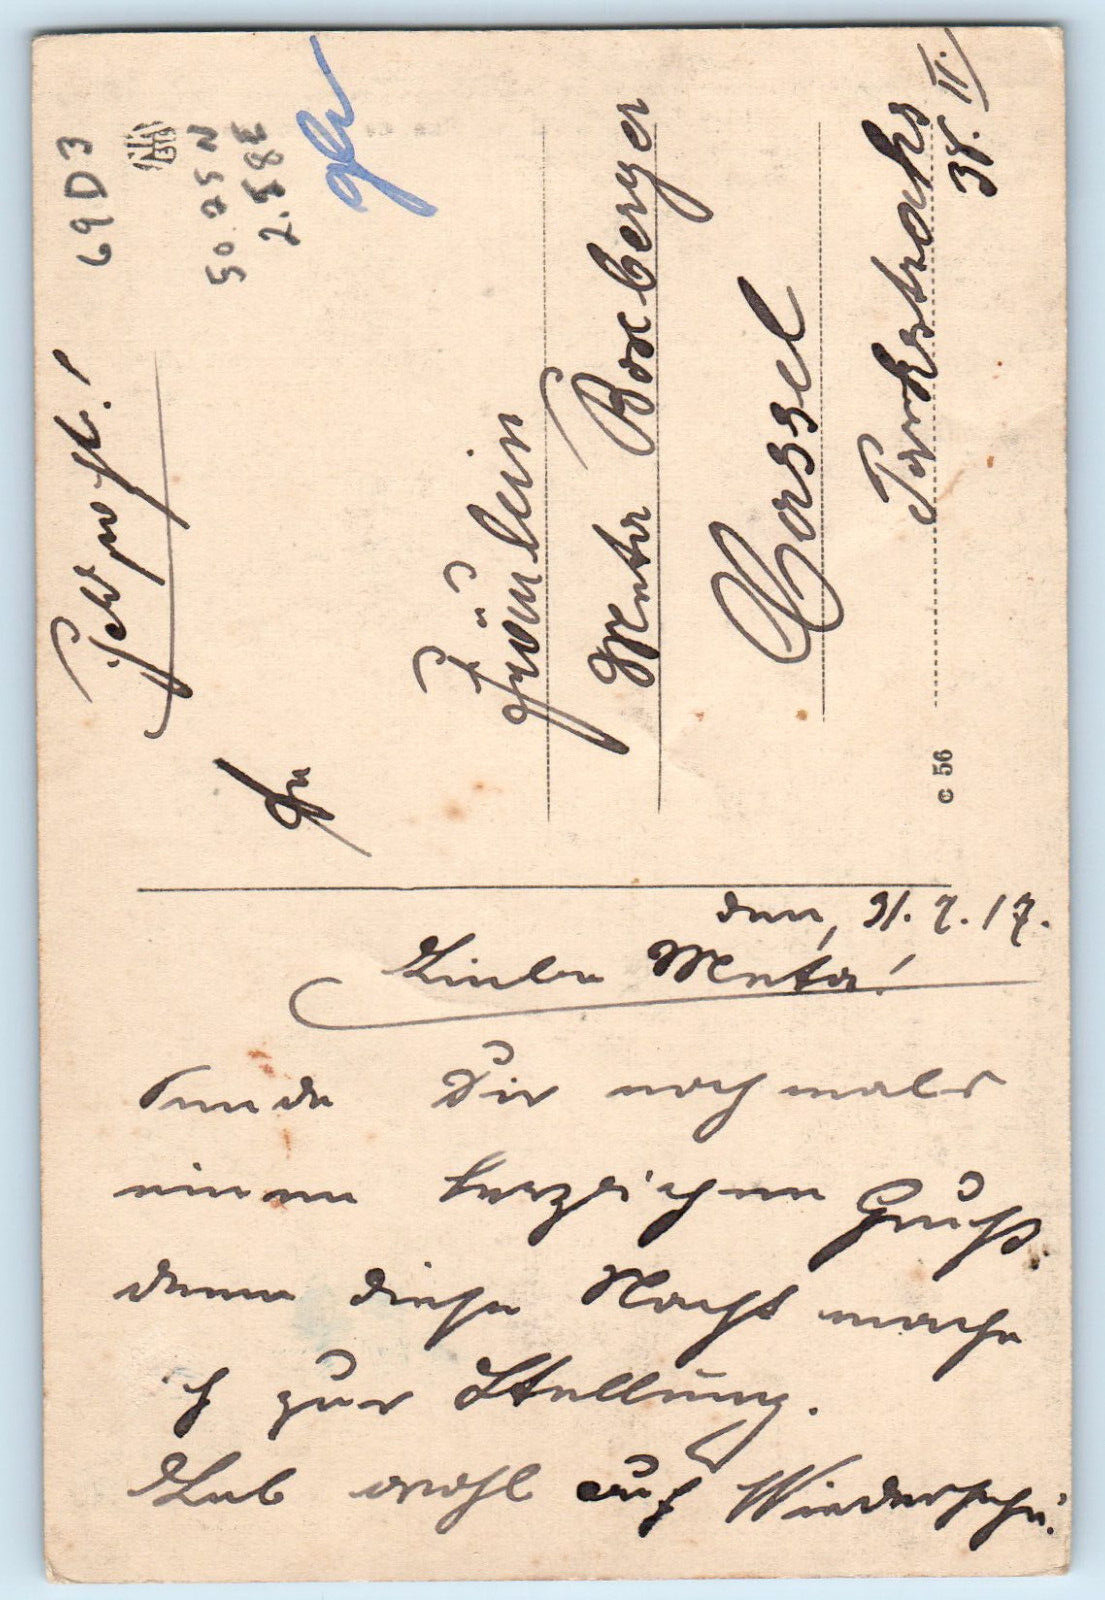 Feldpost!
An
Fräulein
Meta Boxberger
Cassel
Parkstraße
38. II.
69D3
50.25N
2.58E
c 56
den, 31.7.17.
Liebe Meta!
Sende Dir nochmals
einen herzlichen Gruß.
denn diese Nacht mache
ich zur Stellung.
Leb wohl auf Wiedersehn!